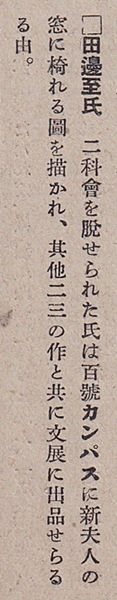 □田邊至氏　二科會を脫せられた氏は百號カンパスに新夫人の
窓に椅れる圖を描かれ、其他二三の作と共に文展に出品せらる
る由。